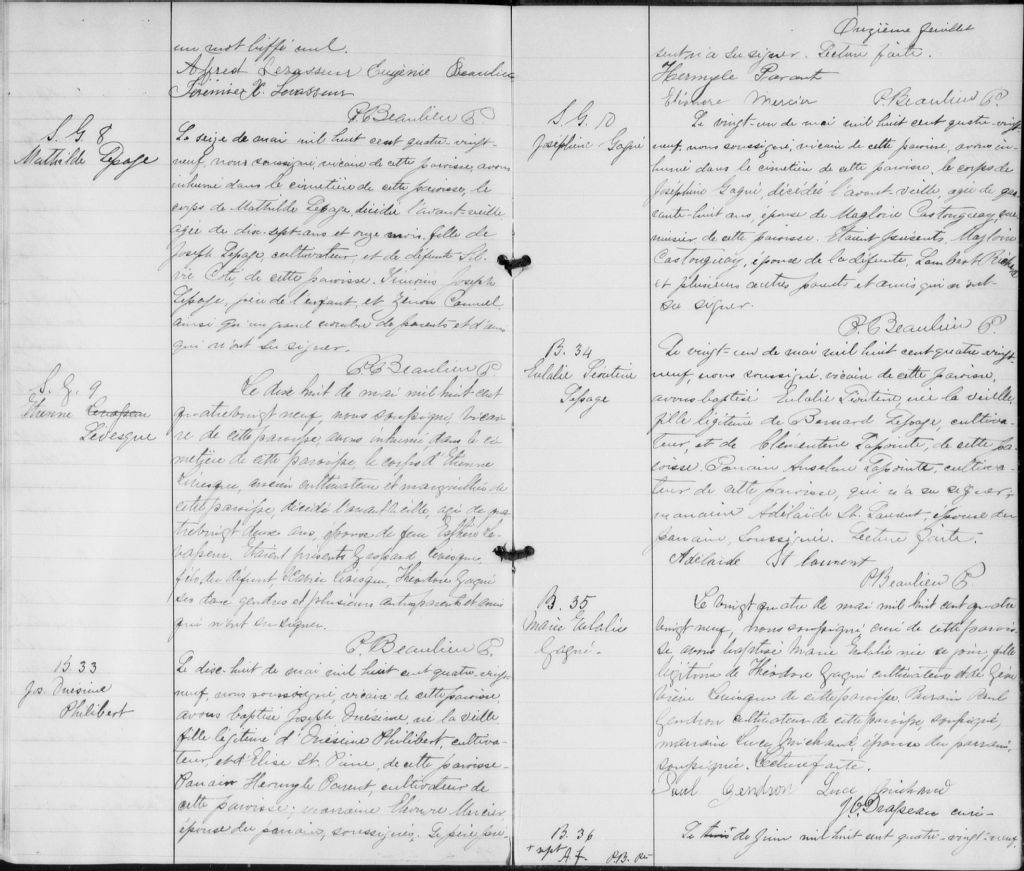 un mot biffé nul.
Alfred Levasseur Eugénie Beaulieu
X. Levasseur
P. Beaulieu P.
S. G. 8
Mathilde Lepage
Le seize de mai mil huit cent quatre-vingt-
neuf, nous soussigné, vicaire de cette paroisse, avons
inhumé dans le cimetière de cette paroisse, le
corps de Mathilde Lepage, décédée l'avant-veille
agée de dix-sept ans et onze mois, fille de
Joseph Lepage, cultivateur, et de défunte
Coté, de cette paroisse. Témoins Joseph
Lepage, père de l'enfant, et Zénon Canuel,
ainsi qu'un grand nombre de parents et d'amis
qui n'ont su signer.
P. Beaulieu P.
S. G. 9
Etienne Levasseur
Levesque
Le dix huit de mai mil huit cent
quatrevingt neuf, nous soussigné, vicai-
re de cette paroisse, avons inhumé, dans le ci-
metière de cette paroisse, le corps d'Etienne
Levesque, ancien cultivateur et marguillier de
cette paroisse, décédé l'avant veille, agé de qua-
trevingt deux ans, époux de feu Esther Le-
vasseur. Etaient présents Gaspard Levesque,
fils du défunt, Levesque, Théodore Gagné
ses deux gendres et plusieurs autres parents et amis
qui n'ont su signer.
P. Beaulieu P.
B. 33
Jos. Onésime
Philibert
Le dix-huit de mai mil huit cent quatre-vingt-
neuf, nous soussigné, vicaire de cette paroisse,
avons baptisé Joseph Onésime, né la veille
fille légitime d'Onésime Philibert, cultiva-
teur, et d'Elise St. Pierre, de cette paroisse.
Parrain Hermyle Parent, cultivateur de
cette paroisse; marraine Mercier
épouse du parrain, soussignée. Le père pré-
Onzième feuillet
sent n'a su signer. Lecture faite.
Hermyle Parant
Eléonore Mercier P. Beaulieu P.
S. G. 10
Joséphine Gagné
Le vingt-un de mai mil huit cent quatre-vingt-
neuf, nous soussigné, vicaire de cette paroisse, avons in-
humé dans le cimetière de cette paroisse, le corps de
Joséphine Gagné, décédée l'avant veille agée de qua-
rante-huit ans, épouse de Magloire Castonguay, me-
nuisier, de cette paroisse. Etaient présents, Magloire
Castonguay, épouse de la défunte, Lambert
et plusieurs autres parents et amis qui n'ont
su signer.
P. Beaulieu P.
B. 34
Eulalie
Lepage
Le vingt-un de mai mil huit cent quatre-vingt-
neuf, nous soussigné, vicaire de cette paroisse,
avons baptisé Eulalie née la veille,
fille légitime de Bernard Lepage, cultiva-
teur, et de Clémentine Lapointe, de cette pa-
roisse. Parrain Anselme Lapointe, cultiva-
teur de cette paroisse, qui n'a su signer;
marraine Adélaide St. Laurent épouse du
parrain, soussignée. Lecture faite.
Adélaide St laurent
P. Beaulieu P.
B. 35
Marie Eulalie
Gagné.
Le vingt quatre de mai mil huit cent quatre
vingt neuf, nous soussigné curé de cette parois-
se avons baptisé Marie Eulalie née ce jour, fille
légitime de Théodore Gagné cultivateur et de Gene-
viève Levesque de cette paroisse. Parrain Paul
Gendron cultivateur de cette paroisse, soussigné,
marraine Luce Michaud, épouse du parrain,
soussignée. Lecture faite.
Paul Gendron Luce Michaud
Drapeau curé
B. 36
+ sept
P.B.
Le trois de Juin mil huit cent quatre-vingt-neuf,